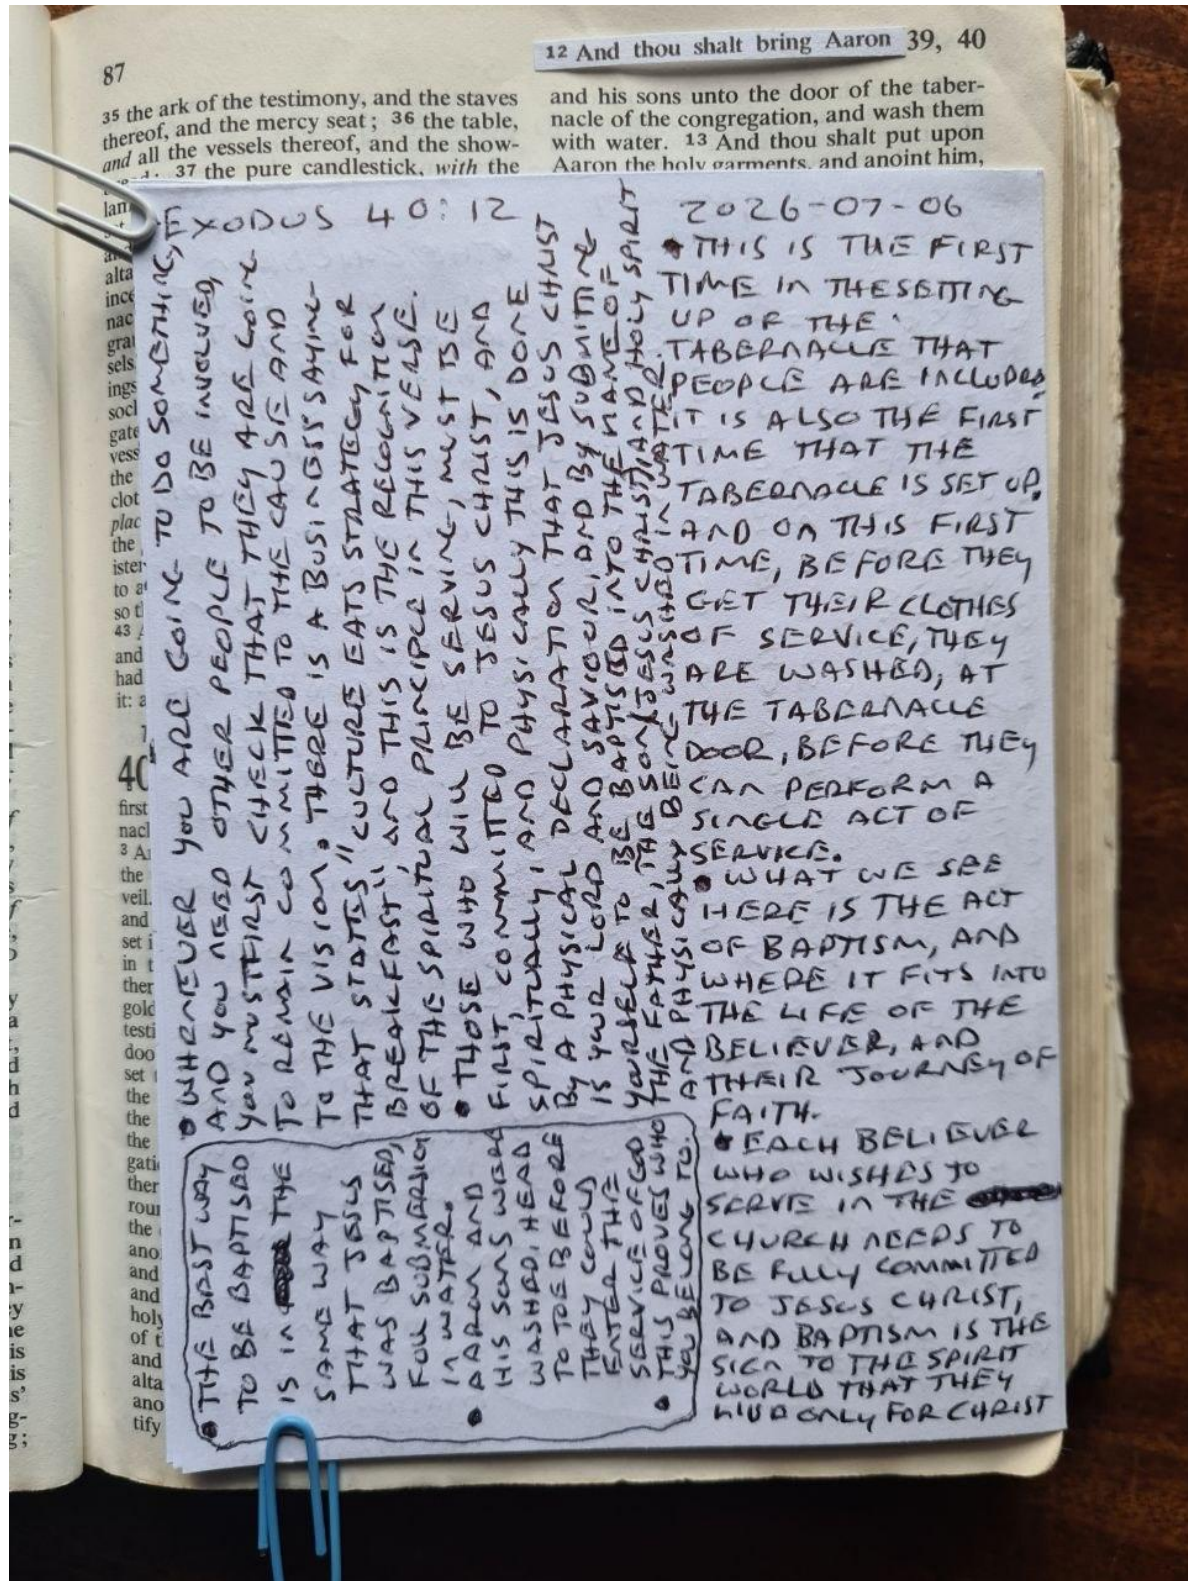 87
12 And thou shalt bring Aaron 39, 40
35 the ark of the testimony, and the staves
thereof, and the mercy seat; 36 the table,
and all the vessels thereof, and the show-
37 the pure candlestick, with the
and his sons unto the door of the taber-
nacle of the congregation, and wash them
with water. 13 And thou shalt put upon
Aaron the holy garments, and anoint him,
EXODUS 40:12
2026-07-06
• THIS IS THE FIRST
TIME IN THE SETTING
UP OF THE
TABERNACLE THAT
PEOPLE ARE INCLUDED.
IT IS ALSO THE FIRST
TIME THAT THE
TABERNACLE IS SET UP.
AND ON THIS FIRST
TIME, BEFORE THEY
GET THEIR CLOTHES
OF SERVICE, THEY
ARE WASHED, AT
THE TABERNACLE
DOOR, BEFORE THEY
CAN PERFORM A
SINGLE ACT OF
SERVICE.
• WHAT WE SEE
HERE IS THE ACT
OF BAPTISM, AND
WHERE IT FITS INTO
THE LIFE OF THE
BELIEVER, AND
THEIR JOURNEY OF
FAITH.
• EACH BELIEVER
WHO WISHES TO
SERVE IN THE
CHURCH NEEDS TO
BE FULLY COMMITTED
TO JESUS CHRIST,
AND BAPTISM IS THE
SIGN TO THE SPIRIT
WORLD THAT THEY
LIVE ONLY FOR CHRIST
• WHENEVER YOU ARE GOING TO DO SOMETHING,
AND YOU NEED OTHER PEOPLE TO BE INVOLVED,
YOU MUST FIRST CHECK THAT THEY ARE GOING
TO REMAIN COMMITTED TO THE CAUSE AND
TO THE VISION. THERE IS A BUSINESS SAYING
THAT STATES "CULTURE EATS STRATEGY FOR
BREAKFAST", AND THIS IS THE RECOGNITION
OF THE SPIRITUAL PRINCIPLE IN THIS VERSE.
• THOSE WHO WILL BE SERVING, MUST BE
FIRST, COMMITTED TO JESUS CHRIST, AND
SPIRITUALLY, AND PHYSICALLY THIS IS DONE
BY A PHYSICAL DECLARATION THAT JESUS CHRIST
IS YOUR LORD AND SAVIOUR, AND BY SUBMITTING
YOURSELF TO BE BAPTISED INTO THE NAME OF
THE FATHER, THE SON (JESUS CHRIST) AND HOLY SPIRIT
AND PHYSICALLY BEING WASHED IN WATER.
• THE BEST WAY
TO BE BAPTISED
IS IN THE
SAME WAY
THAT JESUS
WAS BAPTISED,
FULL SUBMERSION
IN WATER.
• AARON AND
HIS SONS WERE
WASHED, HEAD
TO TOE BEFORE
THEY COULD
ENTER THE
SERVICE OF GOD
• THIS PROVES WHO
YOU BELONG TO.